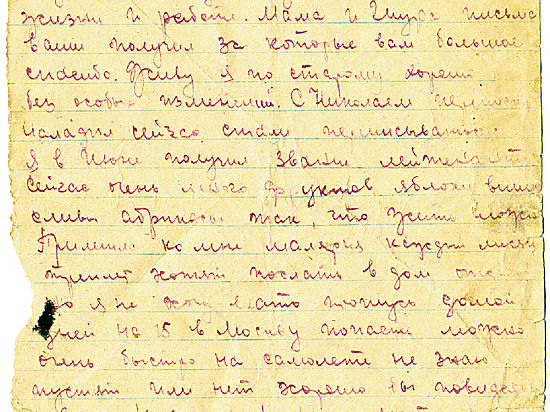 жизни и работе. Мама и Шура письма
ваши получил за которые вам большое
спасибо. Живу я по старому хорошо
без особых изменений. С Николаем переписку
наладил сейчас стали переписыватьс
Я в Июне получил звание лейтенант
Сейчас очень много фруктов яблоки вишн
сливы абрикосы так, что жить можно
Пришла ко мне малярия каждый месяц
треплет хотят послать в дом отд
но я не хочу домой
дней на 15 в Москву попасть можно
очень быстро на самолете не знаю
пустят или нет хорошо бы повидать